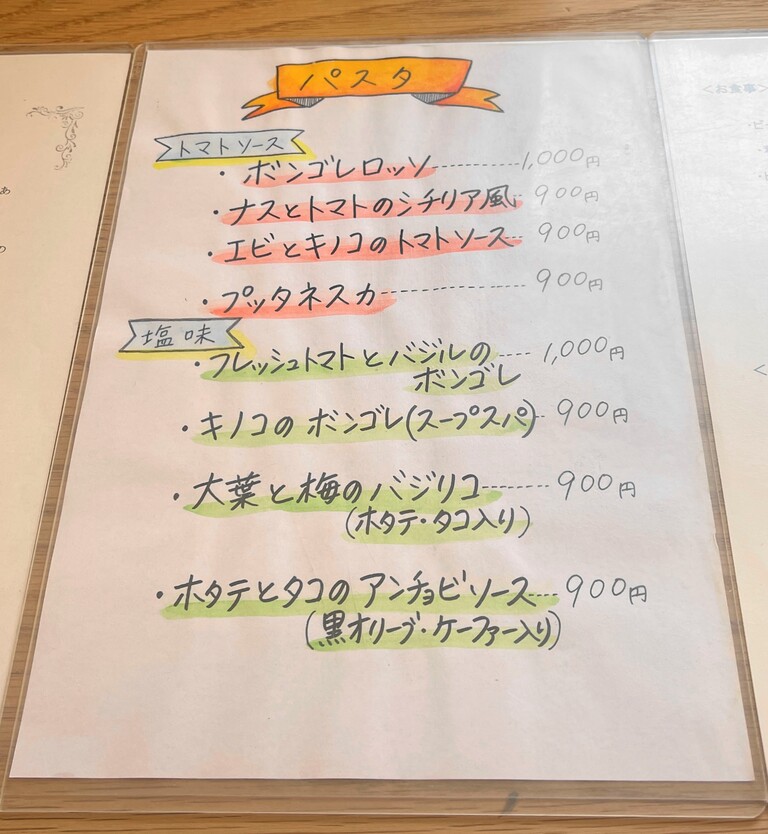 パスタ
トマトソース
・ボンゴレロッソ---------1,000円
・ナスとトマトのシチリア風 900円
・エビとキノコのトマトソース 900円
・プッタネスカ---------------900円
塩味
・フレッシュトマトとバジルの----1,000円
ボンゴレ
・キノコのボンゴレ(スープスパ)-900円
・大葉と梅のバジリコ-------900円
(ホタテ・タコ入り)
・ホタテとタコのアンチョビソース---900円
(黒オリーブ・ケーファー入り)
<お食事>